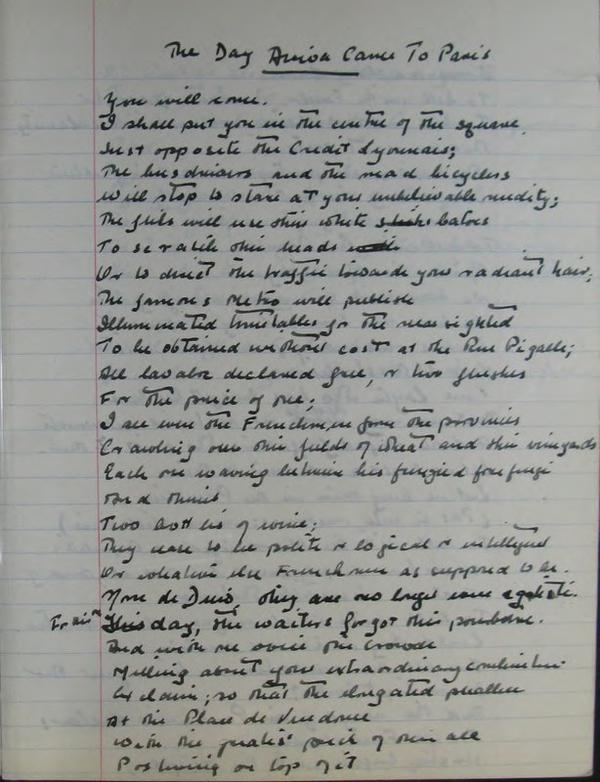 The Day Aviva Came To Paris
You will come.
I shall put you in the centre of the square,
Just opposite the Credit Lyonnais;
The busdrivers and the mad bicycles
Will stop to stare at your unbelievable nudity;
The flics will use their white batons
To scratch their heads
Or to direct the traffic towards your radiant hair;
The famous Metro will publish
Illuminated timetables for the nearsighted
To be obtained without cost at the Rue Pigalle;
All lavabos declared free, or two flushes
For the price of one;
I see even the Frenchmen from the provinces
Crowding over their fields of wheat and their vineyards
Each one waving between his forefinger
And thumb
Two bottles of wine;
They cease to be polite or logical or intelligent
Or whatever else Frenchmen are supposed to be.
Nom de Dieu, they are no longer even
For this day, the waiters forgot their pourboire.
And with one voice the crowds
Milling about your extraordinary
Exclaim; so that the elongated phallus
At the Place de Vendome
With the greatest of them all
Posturing on top of it